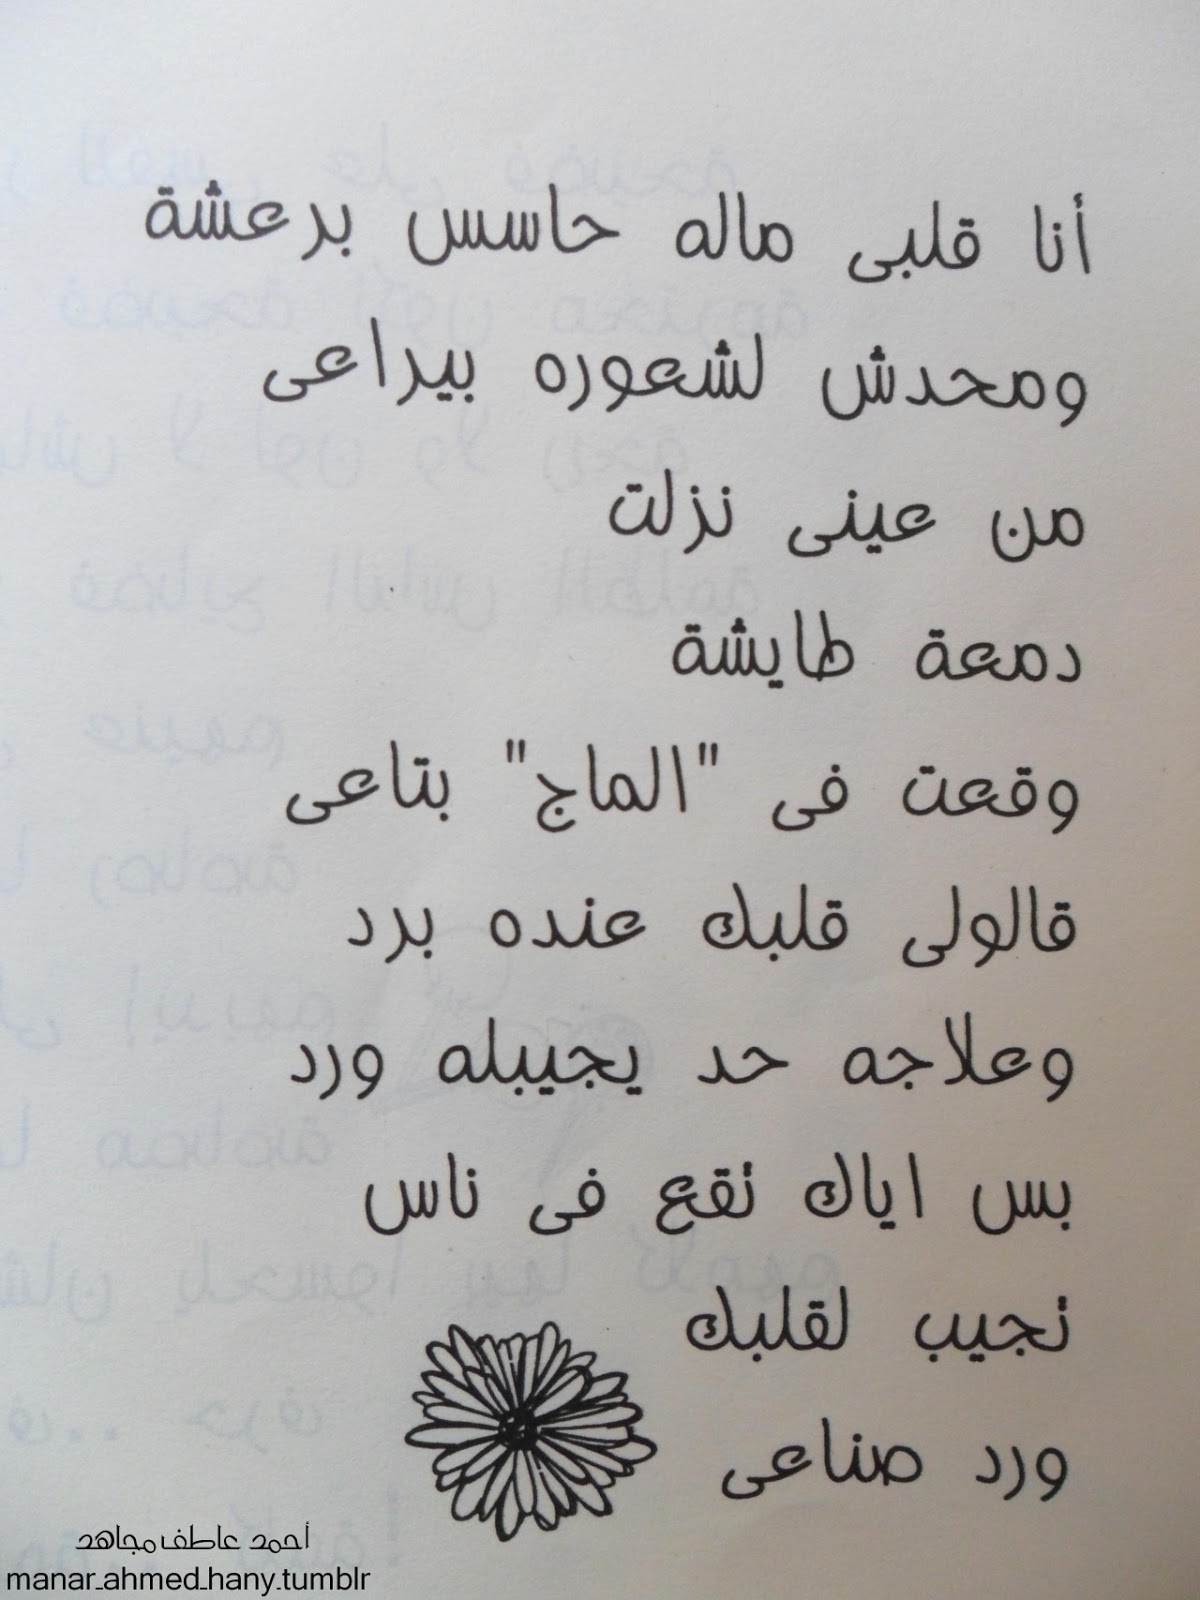 أنا قلبى ماله حاسس برعشة
ومحدش لشعوره بيراعى
من عينى نزلت
دمعة طايشة
وقعت فى "الماج" بتاعى
قالولى قلبك عنده برد
وعلاجه حد يجيبله ورد
بس اياك تقع فى ناس
تجيب لقلبك
ورد صناعى
أحمد عاطف مجاهد
manar_ahmed_hany.tumblr